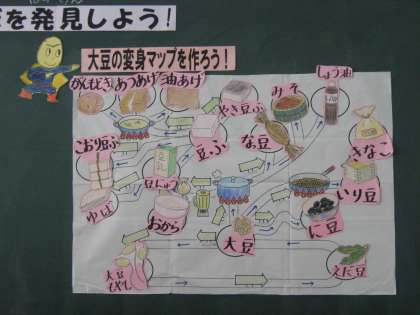 を発見しよう!
大豆の変身マップを作ろう!
がんもどき
あつあげ
油あげ
やき豆ふ
みそ
しょうゆ
こおり豆ふ
豆ふ
な豆
きなこ
豆にゅう
いり豆
ゆば
おから
大豆
に豆
えだ豆
大豆
もやし